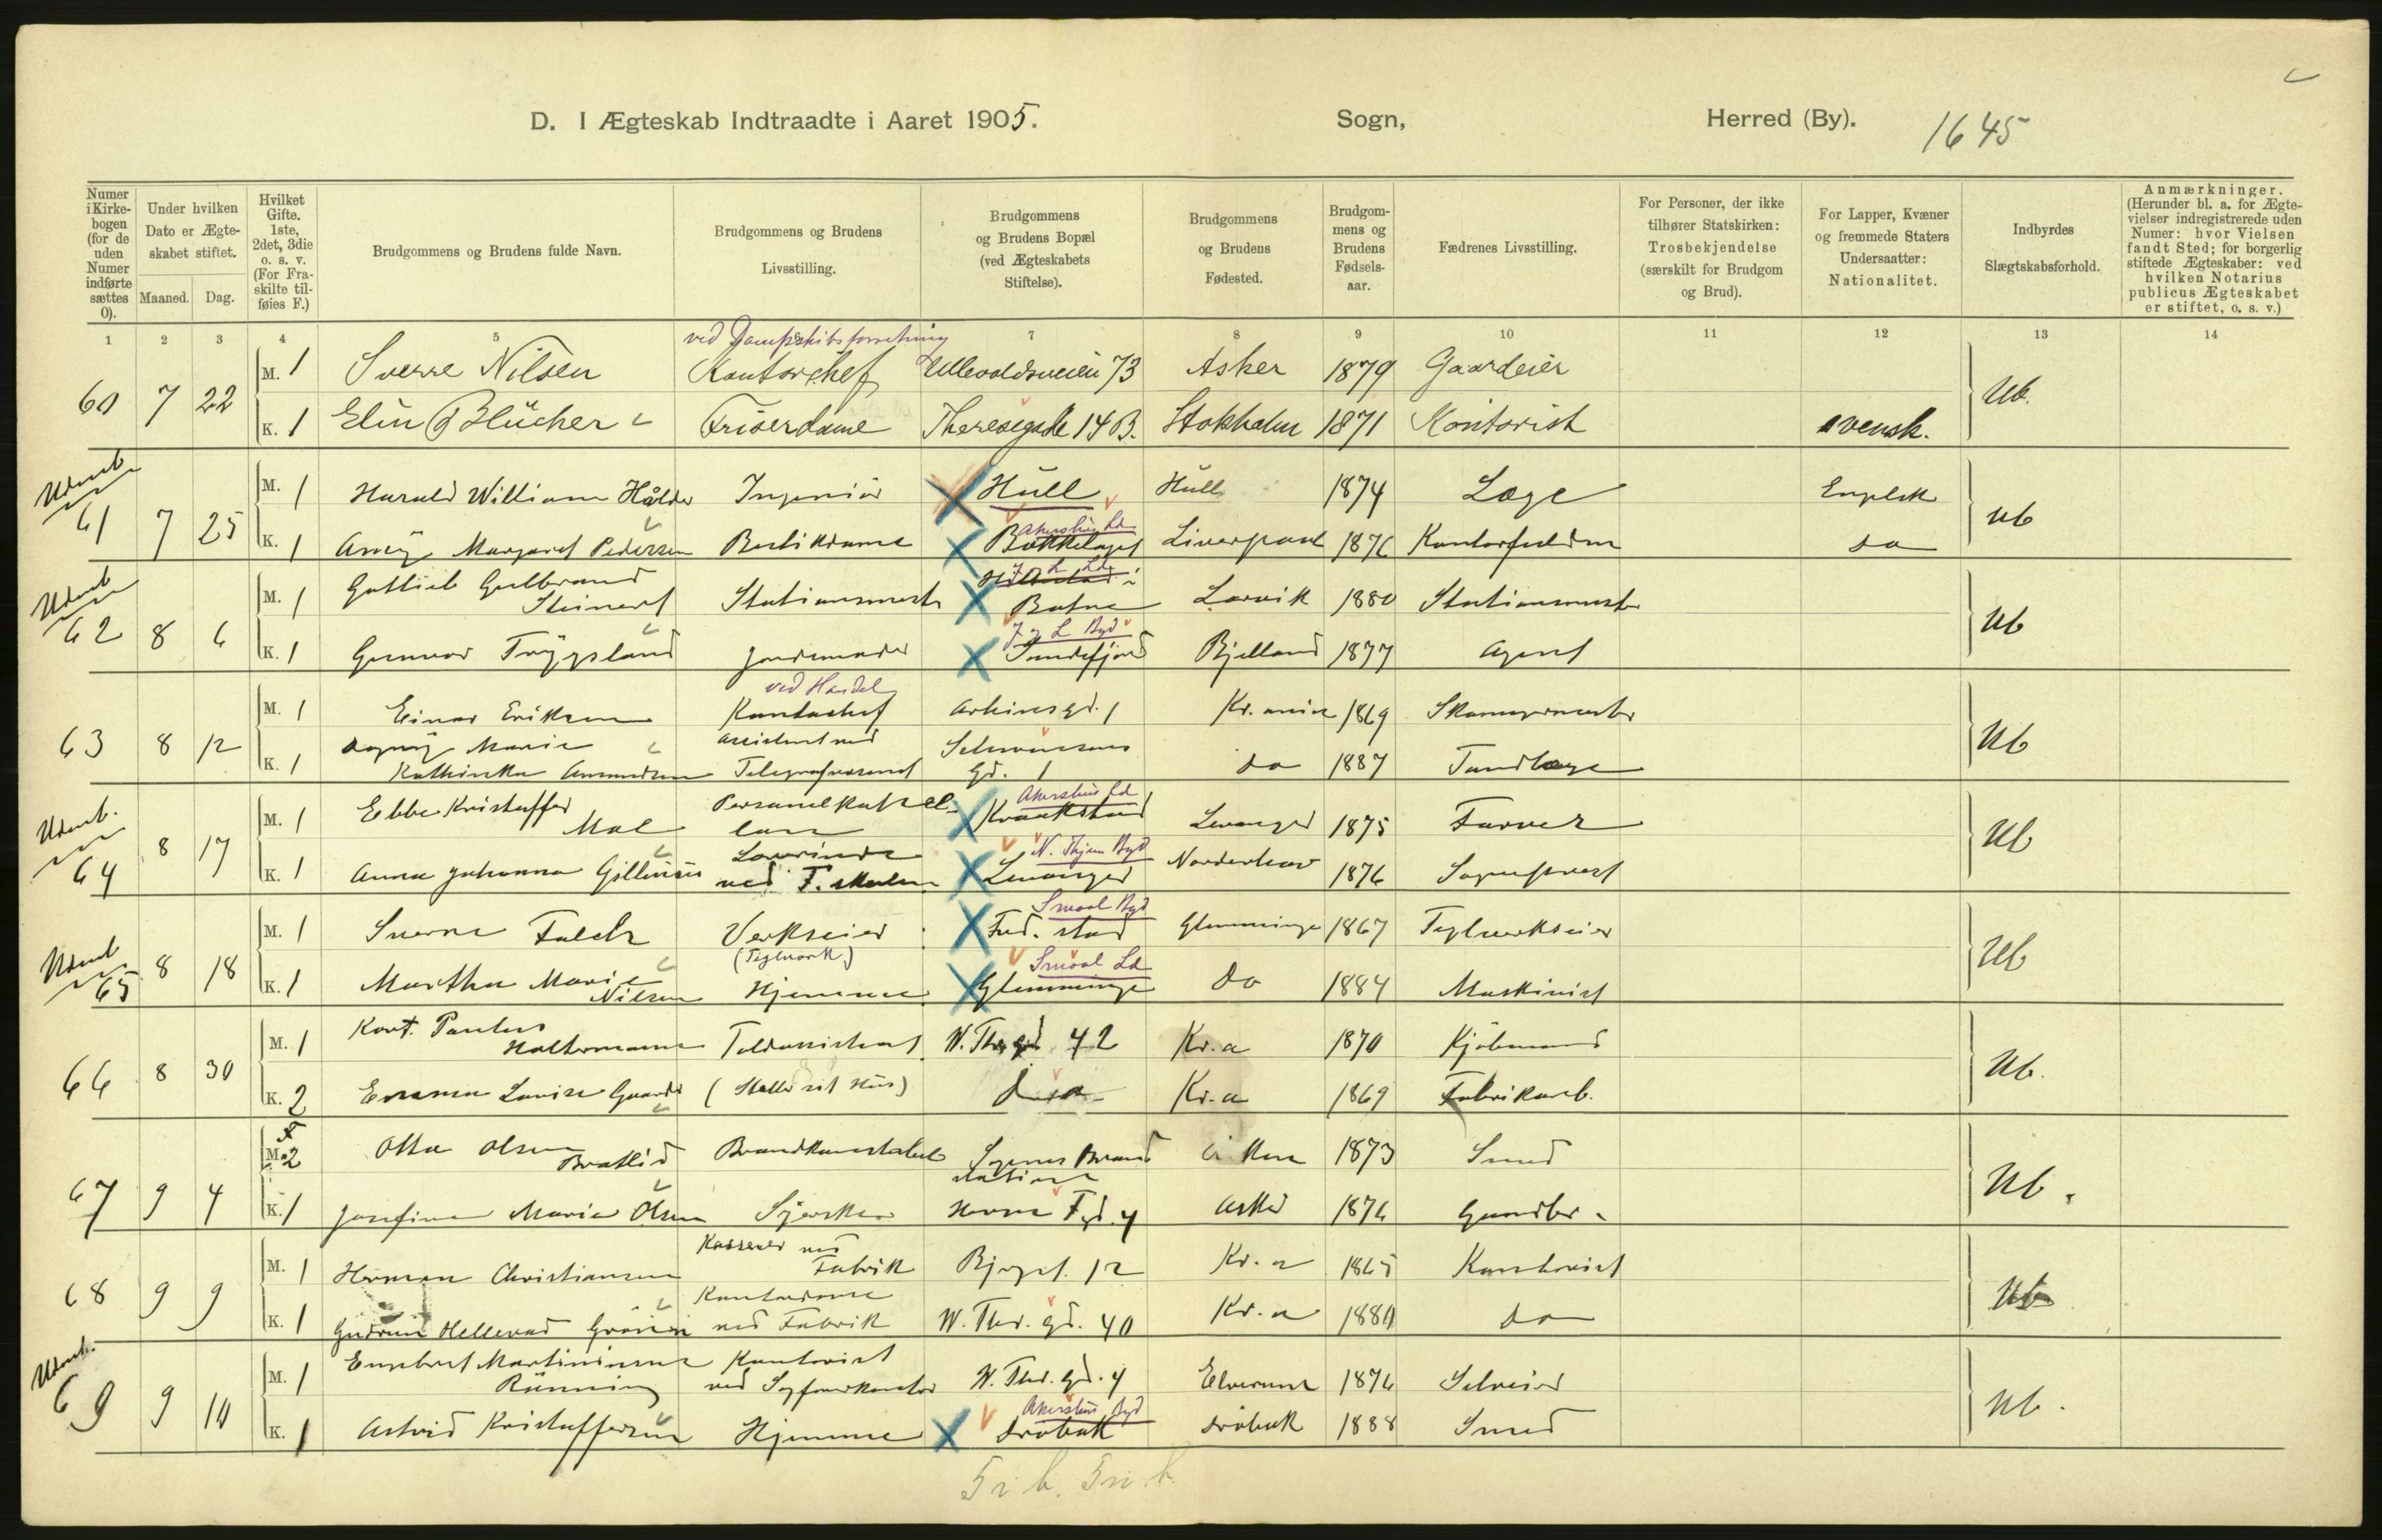 D. I Ægteskab Indtraadte i Aaret 1905. Sogn, Herred (By). 1645
Numer i Kirkebogen (for de uden Numer indførte sættes 0).
Under hvilken Dato er Ægteskabet stiftet.
Maaned. Dag.
Hvilket Gifte. 1ste, 2det, 3die o. s. v. (For Fraskilte tilføies F.)
Brudgommens og Brudens fulde Navn.
Brudgommens og Brudens Livsstilling.
Brudgommens og Brudens Bopæl (ved Ægteskabets Stiftelse).
Brudgommens og Brudens Fødested.
Brudgommens og Brudens Fødselsaar.
Fædrenes Livsstilling.
For Personer, der ikke tilhører Statskirken: Trosbekjendelse (særskilt for Brudgom og Brud).
For Lapper, Kvæner og fremmede Staters Undersaatter: Nationalitet.
Indbyrdes Slægtskabsforhold.
Anmærkninger. (Herunder bl. a. for Ægtevielser indregistrerede uden Numer: hvor Vielsen fandt Sted; for borgerlig stiftede Ægteskaber: ved hvilken Notarius publicus Ægteskabet er stiftet, o. s. v.)
1 2 3 4 5 6 7 8 9 10 11 12 13 14
ved Dampskibsforretning
60 7 22 M. 1 Sverre Nilsen Kontorchef Ullevoldsveien 73 Asker 1879 Gaardeier Ub.
K. 1 Elin Blücher Friserdame Theresegade 14 B. Stokholm 1871 Kontorist svensk.
Udenb.
61 7 25 M. 1 Harald William Ingeniör Hull Hull 1874 Læge Engelsk Ub
Akershus Ld
K. 1 Margaret Pedersen Butikdame Bækkelaget Liverpool 1876 do
Udenb
62 8 6 M. 1 Gottlieb Gulbrand Steinert Stationsmester J. L. Ld. Botne Larvik 1880 Stationsmester Ub
J. L. Byd
K. 1 Gunvor Tryggsland Jordemoder Sandefjord Bjelland 1877 Agent
ved Handel
63 8 12 M. 1 Einar Eriksen Kontorchef Arbinsgd. 1 Kr.ania 1869 Skomagermester Ub
K. 1 Dagny Marie Kathinka Amundsen Assistent ved Telegrafvæsenet Schwensens Gd. 1 do 1887 Tandlæge
Udenb.
Akershus Ld
64 8 17 M. 1 Ebbe Kristoffer Personelkapellan Kraakstad Levanger 1875 Farver Ub
N. Thjem Byd
K. 1 Anna Johanna Lærerinde ved F. skolen Levanger Norderhov 1876 Sogneprest
Udenb
Smaal Byd
65 8 18 M. 1 Sverre Falch Verkseier (Teglverk) Fred. stad Glemminge 1867 Teglverkseier Ub
Smaal Ld
K. 1 Martha Marie Nilsen Hjemme Glemminge do 1884 Maskinist
66 8 30 M. 1 Paulus Haltermann Toldassistent W. Thr. gd 42 Kr.a 1870 Kjöbmand Ub.
K. 2 Emma Lovise Gaarder (Stelle sit Hus) do Kr.a 1869 Fabrikarb.
F
67 9 4 M. 2 Otto Olsen Bratlid Brandkonstabel Sagenes Brandstation 1873 Smed Ub.
K. 1 Josefine Marie Olsen Syerske gd. 4 Asker 1876 Gaardbr.
68 9 9 M. 1 Herman Christiansen Kasserer ved Fabrik 12 Kr.a 1865 Ub
K. 1 Gudrun Hellevad Kontordame ved Fabrik W. Thr. gd. 40 Kr.a 1880 do
Udenb.
69 9 10 M. 1 Engebret Martiniusen Rönning Kontorist ved Sagförerkontor W. Thr. gd. 4 Elverum 1876 Selveier Ub.
Akershus Byd
K. 1 Astrid Kristoffersen Hjemme Dröbak Dröbak 1888 Smed
5 i b. 5 u. b.